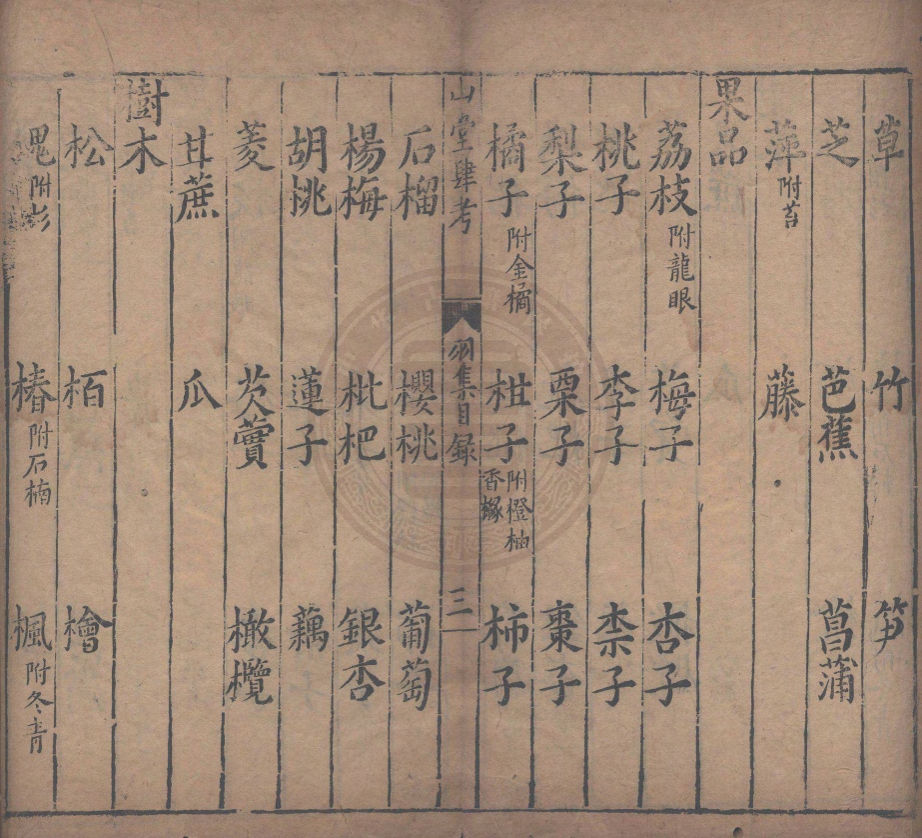 草 竹 笋
芝 芭蕉 菖蒲
萍附苔 藤
果品
荔枝附龍眼 梅子 杏子
桃子 李子 柰子
梨子 栗子 棗子
橘子附金橘 柑子附橙柚香櫞 柿子
山堂肆考 羽集目録 三
石榴 櫻桃 葡萄
楊梅 枇杷 銀杏
胡桃 蓮子 藕
菱 芡實 橄欖
甘蔗 瓜
樹木
松 栢 檜
附杉 椿附石楠 楓附冬青